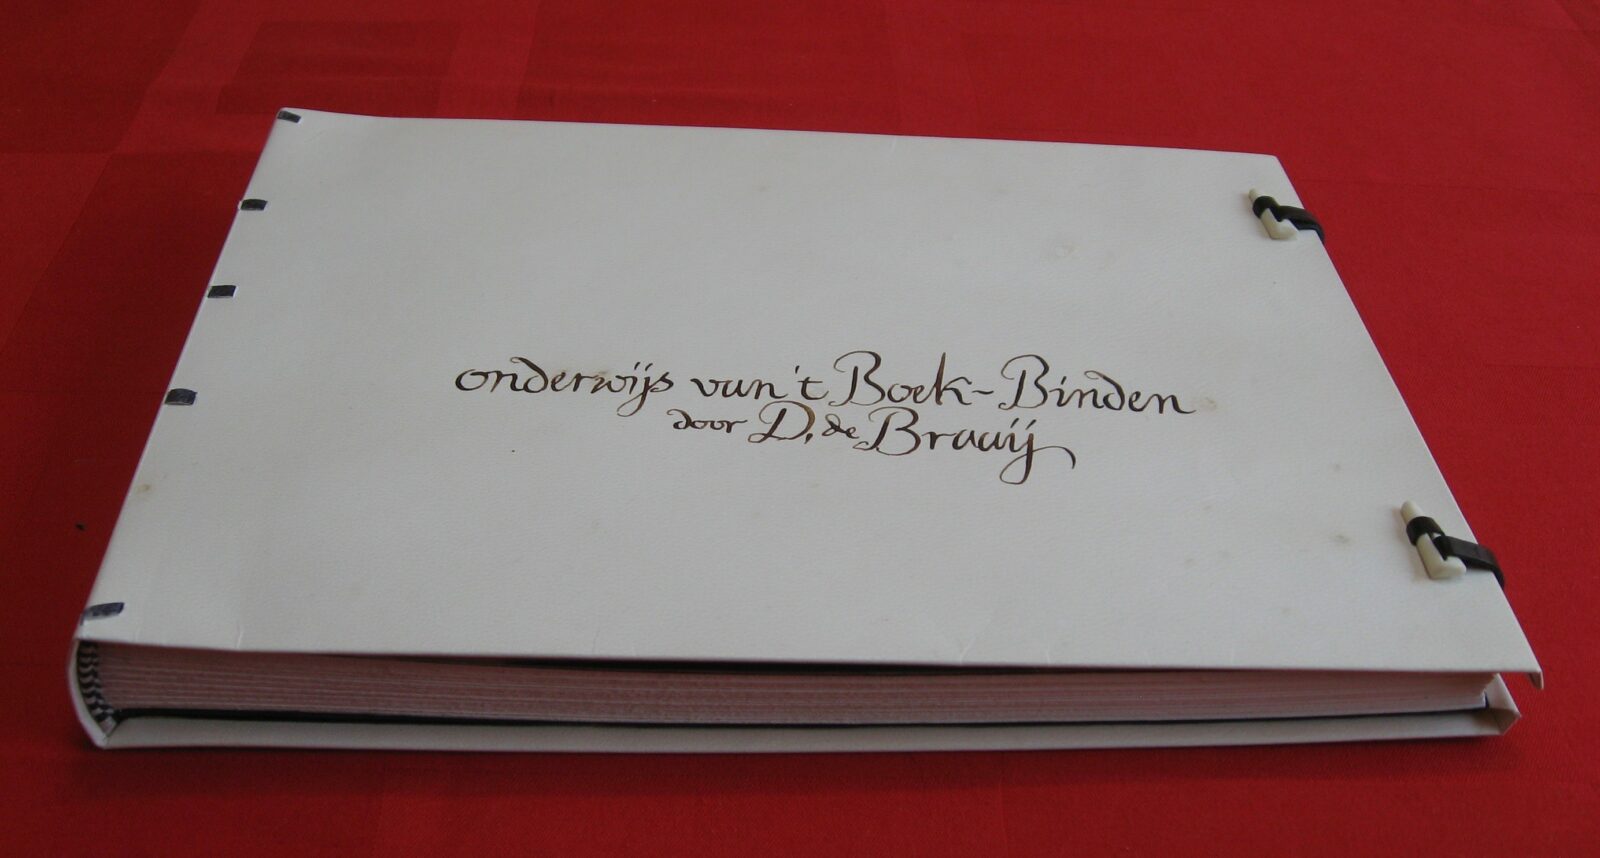 onderwijs van't Boek-Binden
door D. de Braaij